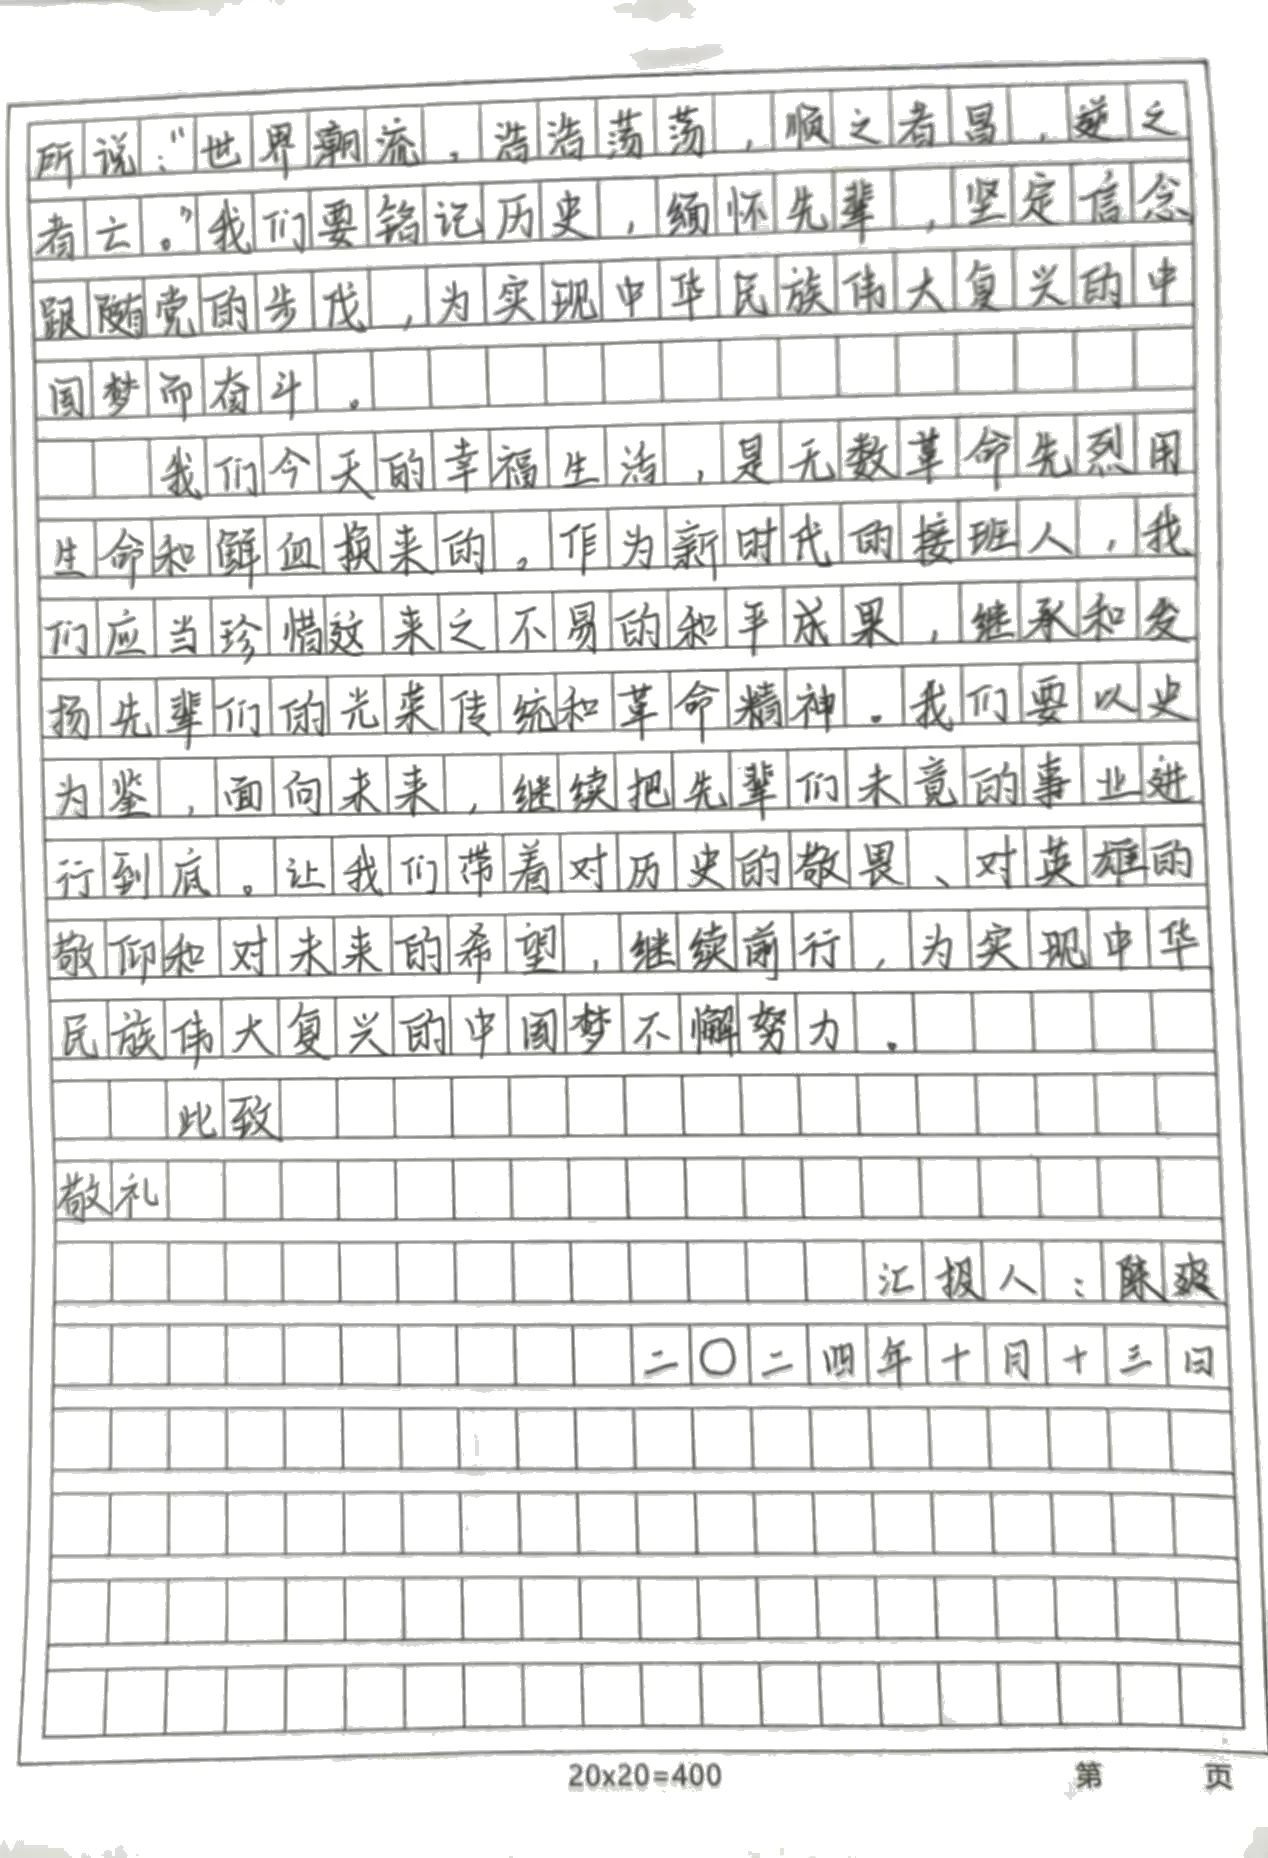 所说："世界潮流，浩浩荡荡，顺之者昌，逆之
者亡。"我们要铭记历史，缅怀先辈，坚定信念
跟随党的步伐，为实现中华民族伟大复兴的中
国梦而奋斗。
我们今天的幸福生活，是无数革命先烈用
生命和鲜血换来的。作为新时代的接班人，我
们应当珍惜这来之不易的和平成果，继承和发
扬先辈们的光荣传统和革命精神。我们要以史
为鉴，面向未来，继续把先辈们未竟的事业进
行到底。让我们带着对历史的敬畏、对英雄的
敬仰和对未来的希望，继续前行，为实现中华
民族伟大复兴的中国梦不懈努力。
此致
敬礼
汇报人：陈爽
二〇二四年十月十三日
20x20=400 第 页